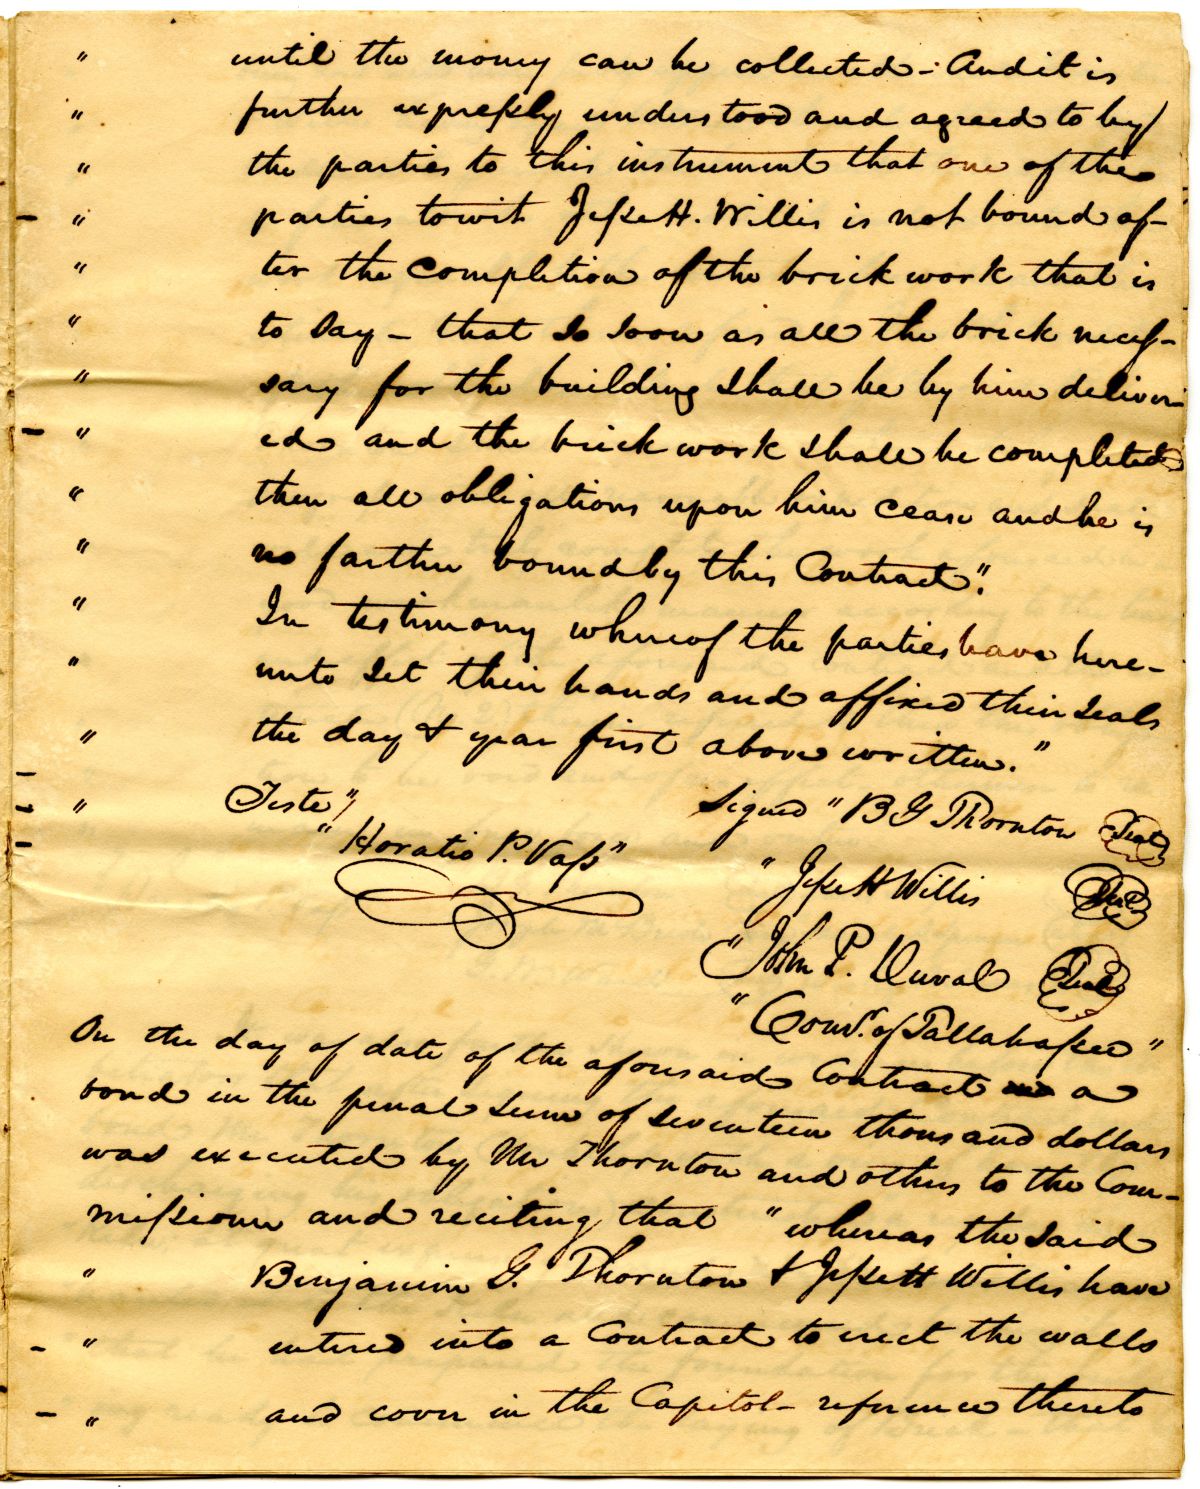 " until the money can be collected - And it is
" further expressly understood and agreed to by
" the parties to this instrument that one of the
" parties towit Jesse H. Willis is not bound af-
" ter the Completion of the brick work that is
" to say - that so soon as all the brick neces-
" sary for the building shall be by him deliver-
" ed and the brick work shall be completed
" then all obligations upon him cease and he is
" no farther bound by this Contract".
" In testimony whereof the parties have here-
" unto set their hands and affixed their seals
" the day & year first above written."
" Teste" Signed "B G Thornton Seal
"Horatio P. Vass" "Jesse H Willis Seal
"John P. Duval Seal
"Comr. of Tallahassee"
On the day of date of the aforesaid Contract a
bond in the penal sum of seventeen thousand dollars
was executed by Mr Thornton and others to the Com-
missioner and reciting that "whereas the said
" Benjamin G. Thornton & Jesse H Willis have
" entered into a Contract to erect the walls
" and cover in the Capitol - reference thereto